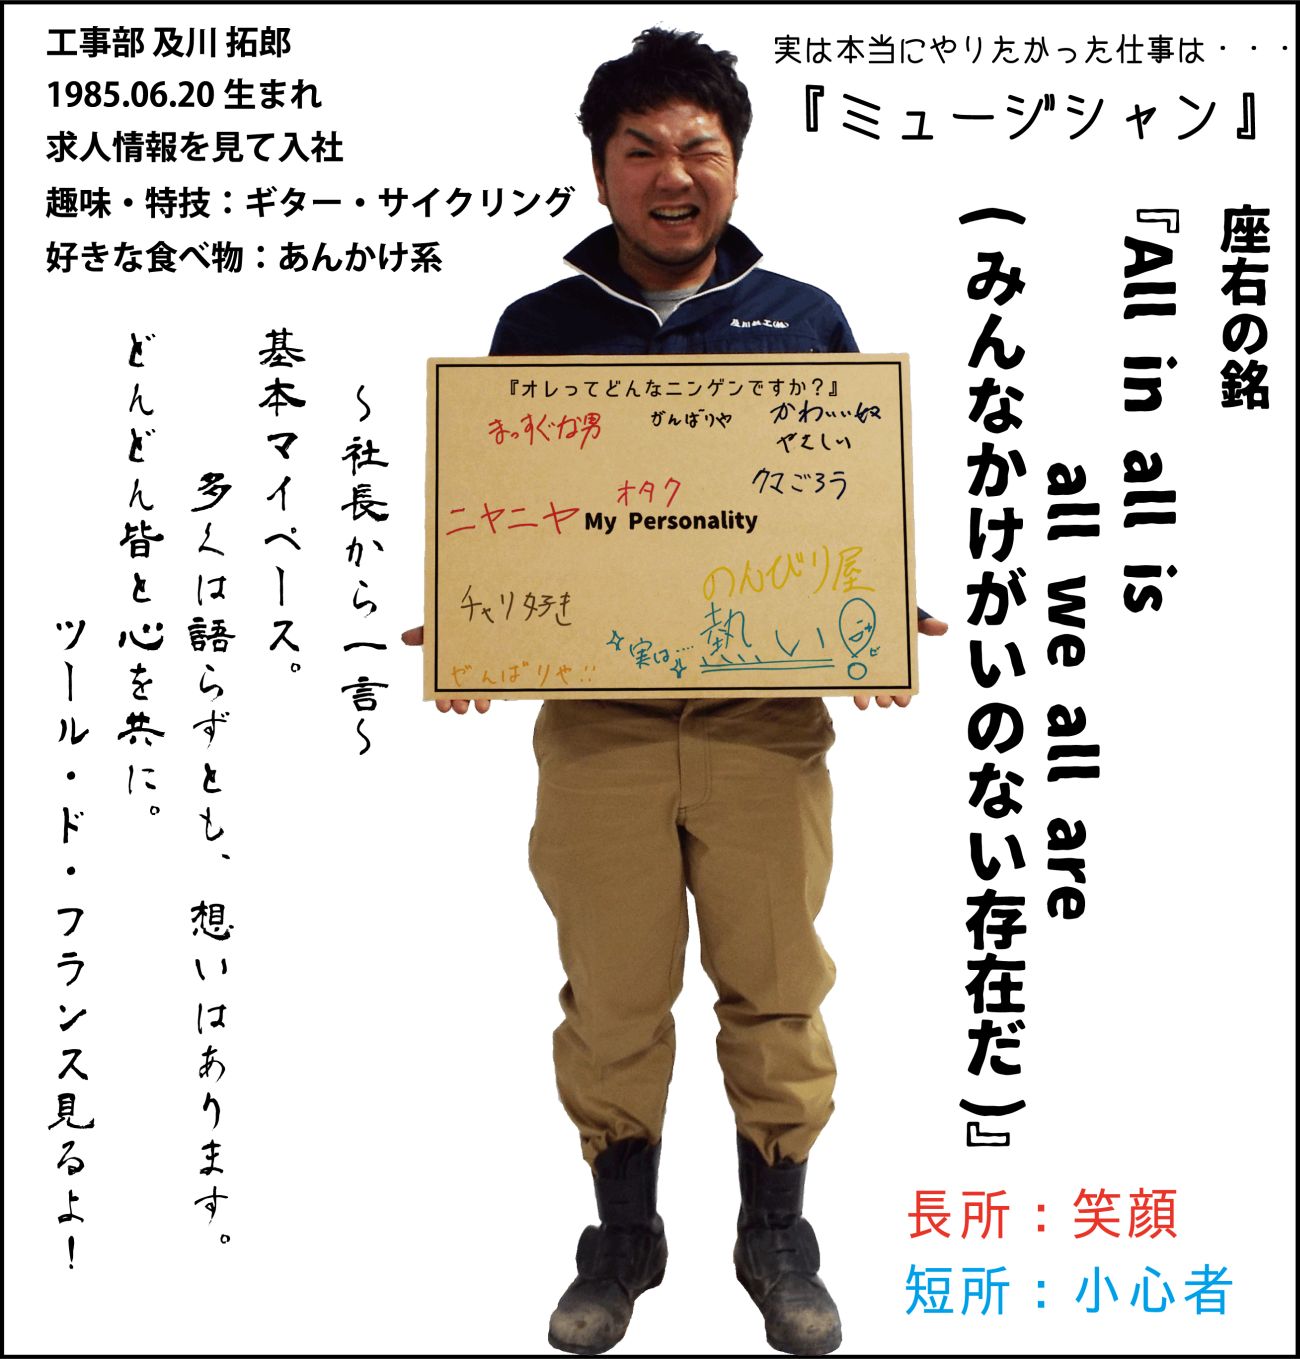 工事部 及川 拓郎
1985.06.20 生まれ
求人情報を見て入社
趣味・特技：ギター・サイクリング
好きな食べ物：あんかけ系
実は本当にやりたかった仕事は・・・
『ミュージシャン』
座右の銘
『All in all is
all we all are
(みんなかけがいのない存在だ)』
〜社長から一言〜
基本マイペース。
多くは語らずとも、想いはあります。
どんどん皆と心を共に。
ツール・ド・フランス見るよ！
及川鉄工(株)
『オレってどんなニンゲンですか？』
まっすぐな男
がんばりや
かわいい奴
やさしい
クマごろう
オタク
ニヤニヤ
My Personality
のんびり屋
チャリ好き
実は…熱い
がんばりや!!
長所：笑顔
短所：小心者